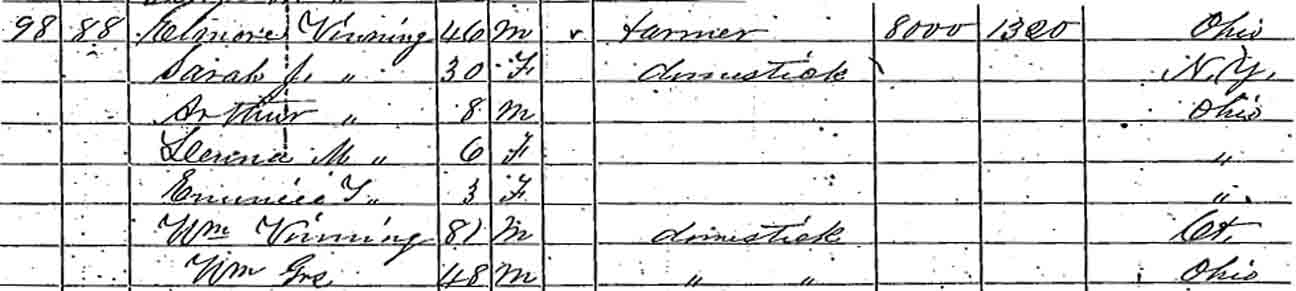 98 88 Elinore Vinning 46 M v farmer 8000 1320 Ohio
Sarah J. " 30 F domestick N.Y.
Arthur " 8 M Ohio
M " 6 F "
F " 3 F "
Wm Vinning 81 M domestick Ct.
Wm Gre 48 M " " Ohio